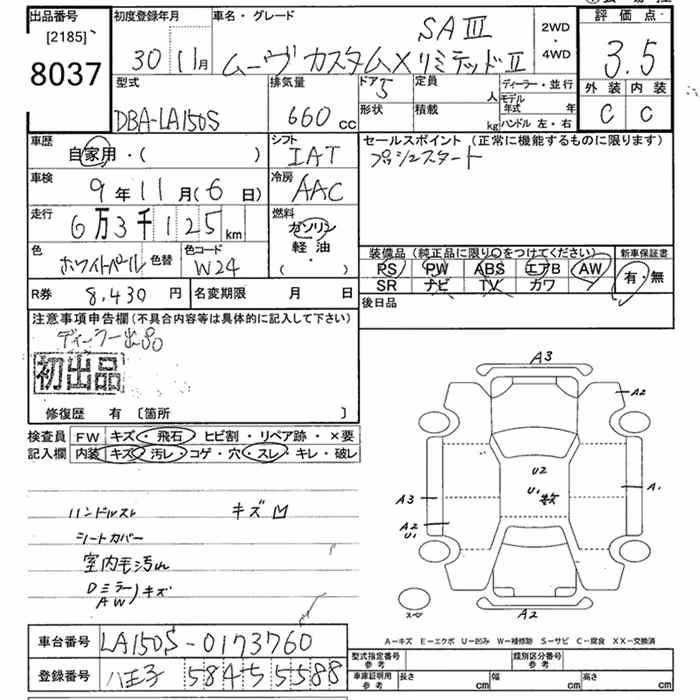 出品番号
[2185]
8037
初度登録年月
30 11月
車名・グレード
SAⅢ
ムーヴ カスタムXリミテッドⅡ
2WD
・
4WD
評価点
3.5
外装 内装
C C
型式
DBA-LA150S
排気量
660 cc
ドア
5
形状
定員
人
積載
kg
ディーラー・並行
モデル年式 年
ハンドル 左・右
車歴
自家用・( )
シフト
IAT
セールスポイント (正常に機能するものに限ります)
プッシュスタート
車検
9年11月(6日)
冷房
AAC
走行
6万3千125km
燃料
ガソリン
軽油
・( )
色
ホワイトパール
色替
色コード
W24
装備品 (純正品に限り○をつけてください)
PS PW ABS エアB AW
SR ナビ TV カワ
新車保証書
有・無
R券 8,430 円
名変期限 月 日
後日品
注意事項申告欄 (不具合内容等は具体的に記入して下さい)
ディーラー出品
初出品
修復歴 有 [箇所 ]
検査員
記入欄
FW キズ・飛石・ヒビ割・リペア跡・×要
内装 キズ・汚レ・コゲ・穴・スレ・キレ・破レ
キズ
シートカバー
室内毛汚れ
Dミラー
AW
キズ
A3
A2
U2
U1
A3
A1
A2
U1
A2
A-キズ E-エクボ U-凹み W-補修跡 S-サビ C-腐食 XX-交換済
車台番号 LA150S-0173760
登録番号 八王子 584 55588
型式指定番号
参考
類別区分番号
参考
車庫証明用
参考
長さ cm 幅 cm 高さ cm